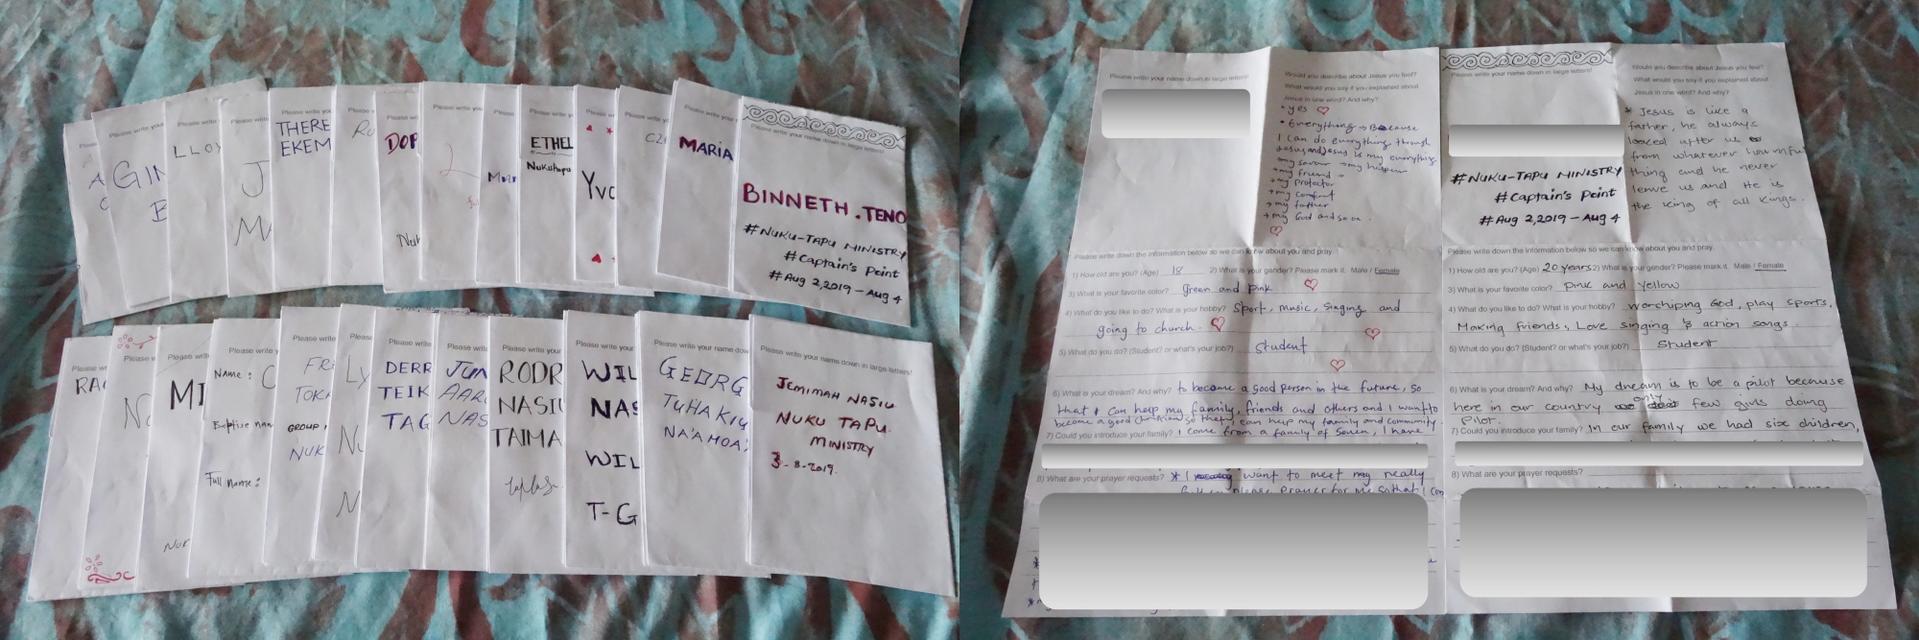 Please write you
GIN
LLOY
J
MA
Please write you
THERE
EKEM
Please
RU
DOP
Nuk
Please write
L
Please write
ETHEL
Nukutapu
Please w
YVO
Please write y
MARIA
Please write your name down in large letters!
BINNETH. TENO
#NUKU-TAPU MINISTRY
#Captain's Point
#Aug 2,2019 - Aug 4
RA
Please w
No
Please write
MI
Please write
Name :
Baptise nam
Full name :
Please write
FRE
TOKA
GROUP
NUK
Please
Ly
N
Please write y
DERR
TEIK
TAG
Please write
JUN
AARO
NAS
Please write you
RODR
NASIU
TAIMA
Please write you
WIL
NAS
WIL
T-G
Please write your name dow
GEORG
TUHAKIU
NA'AHOA
Please write your name down in large letters!
JEMIMAH NASIU
NUKU TAPU
MINISTRY
3-8-2019.
Please write your name down in large letters!
Would you describe about Jesus you feel?
What would you say if you explained about
Jesus in one word? And why?
• yes
• Everything → Because
I can do everything through
Jesus and Jesus is my everything
→ my saviour → my helper
→ my friend
→ my protector
→ my comfort
→ my father
→ my God and so on.
Please write down the information below so we can know about you and pray.
1) How old are you? (Age) 18 2) What is your gender? Please mark it. Male / Female
3) What is your favorite color? Green and Pink
4) What do you like to do? What is your hobby? Sport, music, singing and
going to church.
5) What do you do? (Student? or what's your job?) Student
6) What is your dream? And why? to become a good person in the future, so
that I can help my family, friends and others and I want to
become a good christian so that I can help my family and community
7) Could you introduce your family? I come from a family of seven, I have
8) What are your prayer requests? * I want to meet my really
please prayer for me so that I can
Please write your name down in large letters!
#NUKU-TAPU MINISTRY
#Captain's Point
#Aug 2,2019 - Aug 4
Would you describe about Jesus you feel?
What would you say if you explained about
Jesus in one word? And why?
* Jesus is like a
father, he always
looked after us
from whatever harmful
thing and he never
leave us and He is
the King of all Kings.
Please write down the information below so we can know about you and pray.
1) How old are you? (Age) 20 years 2) What is your gender? Please mark it. Male / Female
3) What is your favorite color? Pink and Yellow
4) What do you like to do? What is your hobby? Worchiping God, play sports,
Making friends, Love singing & action songs.
5) What do you do? (Student? or what's your job?) Student
6) What is your dream? And why? My dream is to be a pilot because
here in our country only few girls doing
Pilot.
7) Could you introduce your family? In our family we had six children,
8) What are your prayer requests?